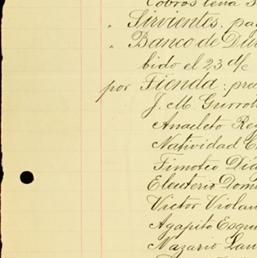 Cobros
" Sirvientes, pa
" Banco de
bido el 23 d/c
por Tienda: pre
J. M. Gurro
Anacleto Re
Natividad
Timoteo Dia
Eleuterio Dom
Victor Violan
Agapito Esqu
Nazario Lan